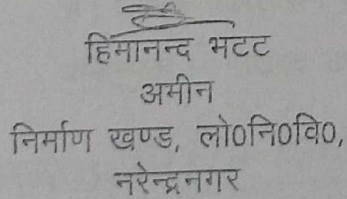 हिमानन्द भटट
अमीन
निर्माण खण्ड, लो0नि0वि0,
नरेन्द्रनगर